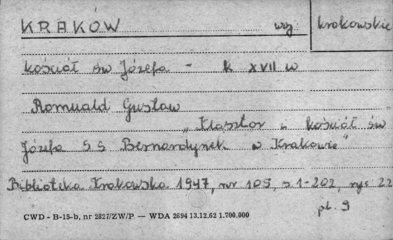 KRAKÓW woj krakowskie
kościół św Józefa - k XVII w
Romuald Gustaw
"Klasztor i kościół św
Józefa S S Bernardynek w Krakowie"
Biblioteka Krakowska 1947, nr 105, s 1-202, ryc 22
pl. 9
CWD - B-15-b, nr 2827/ZW/P — WDA 2694 13.12.62 1.700.000